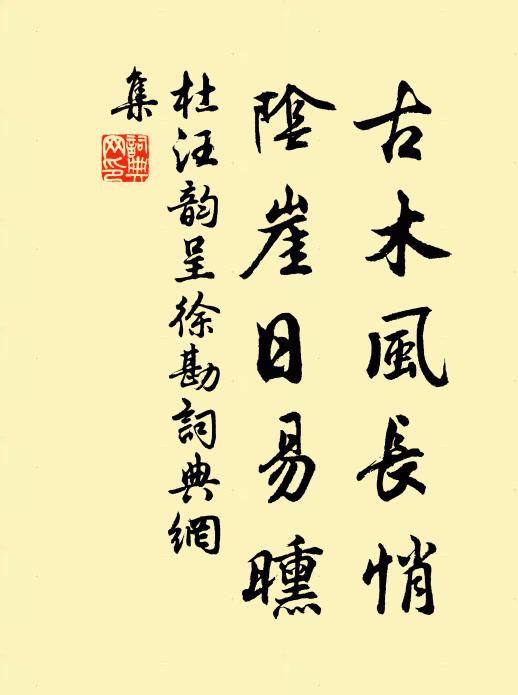 古木風長悄
陰崖日易曛
杜汪韵呈徐勘詞典網
集
詞典網印